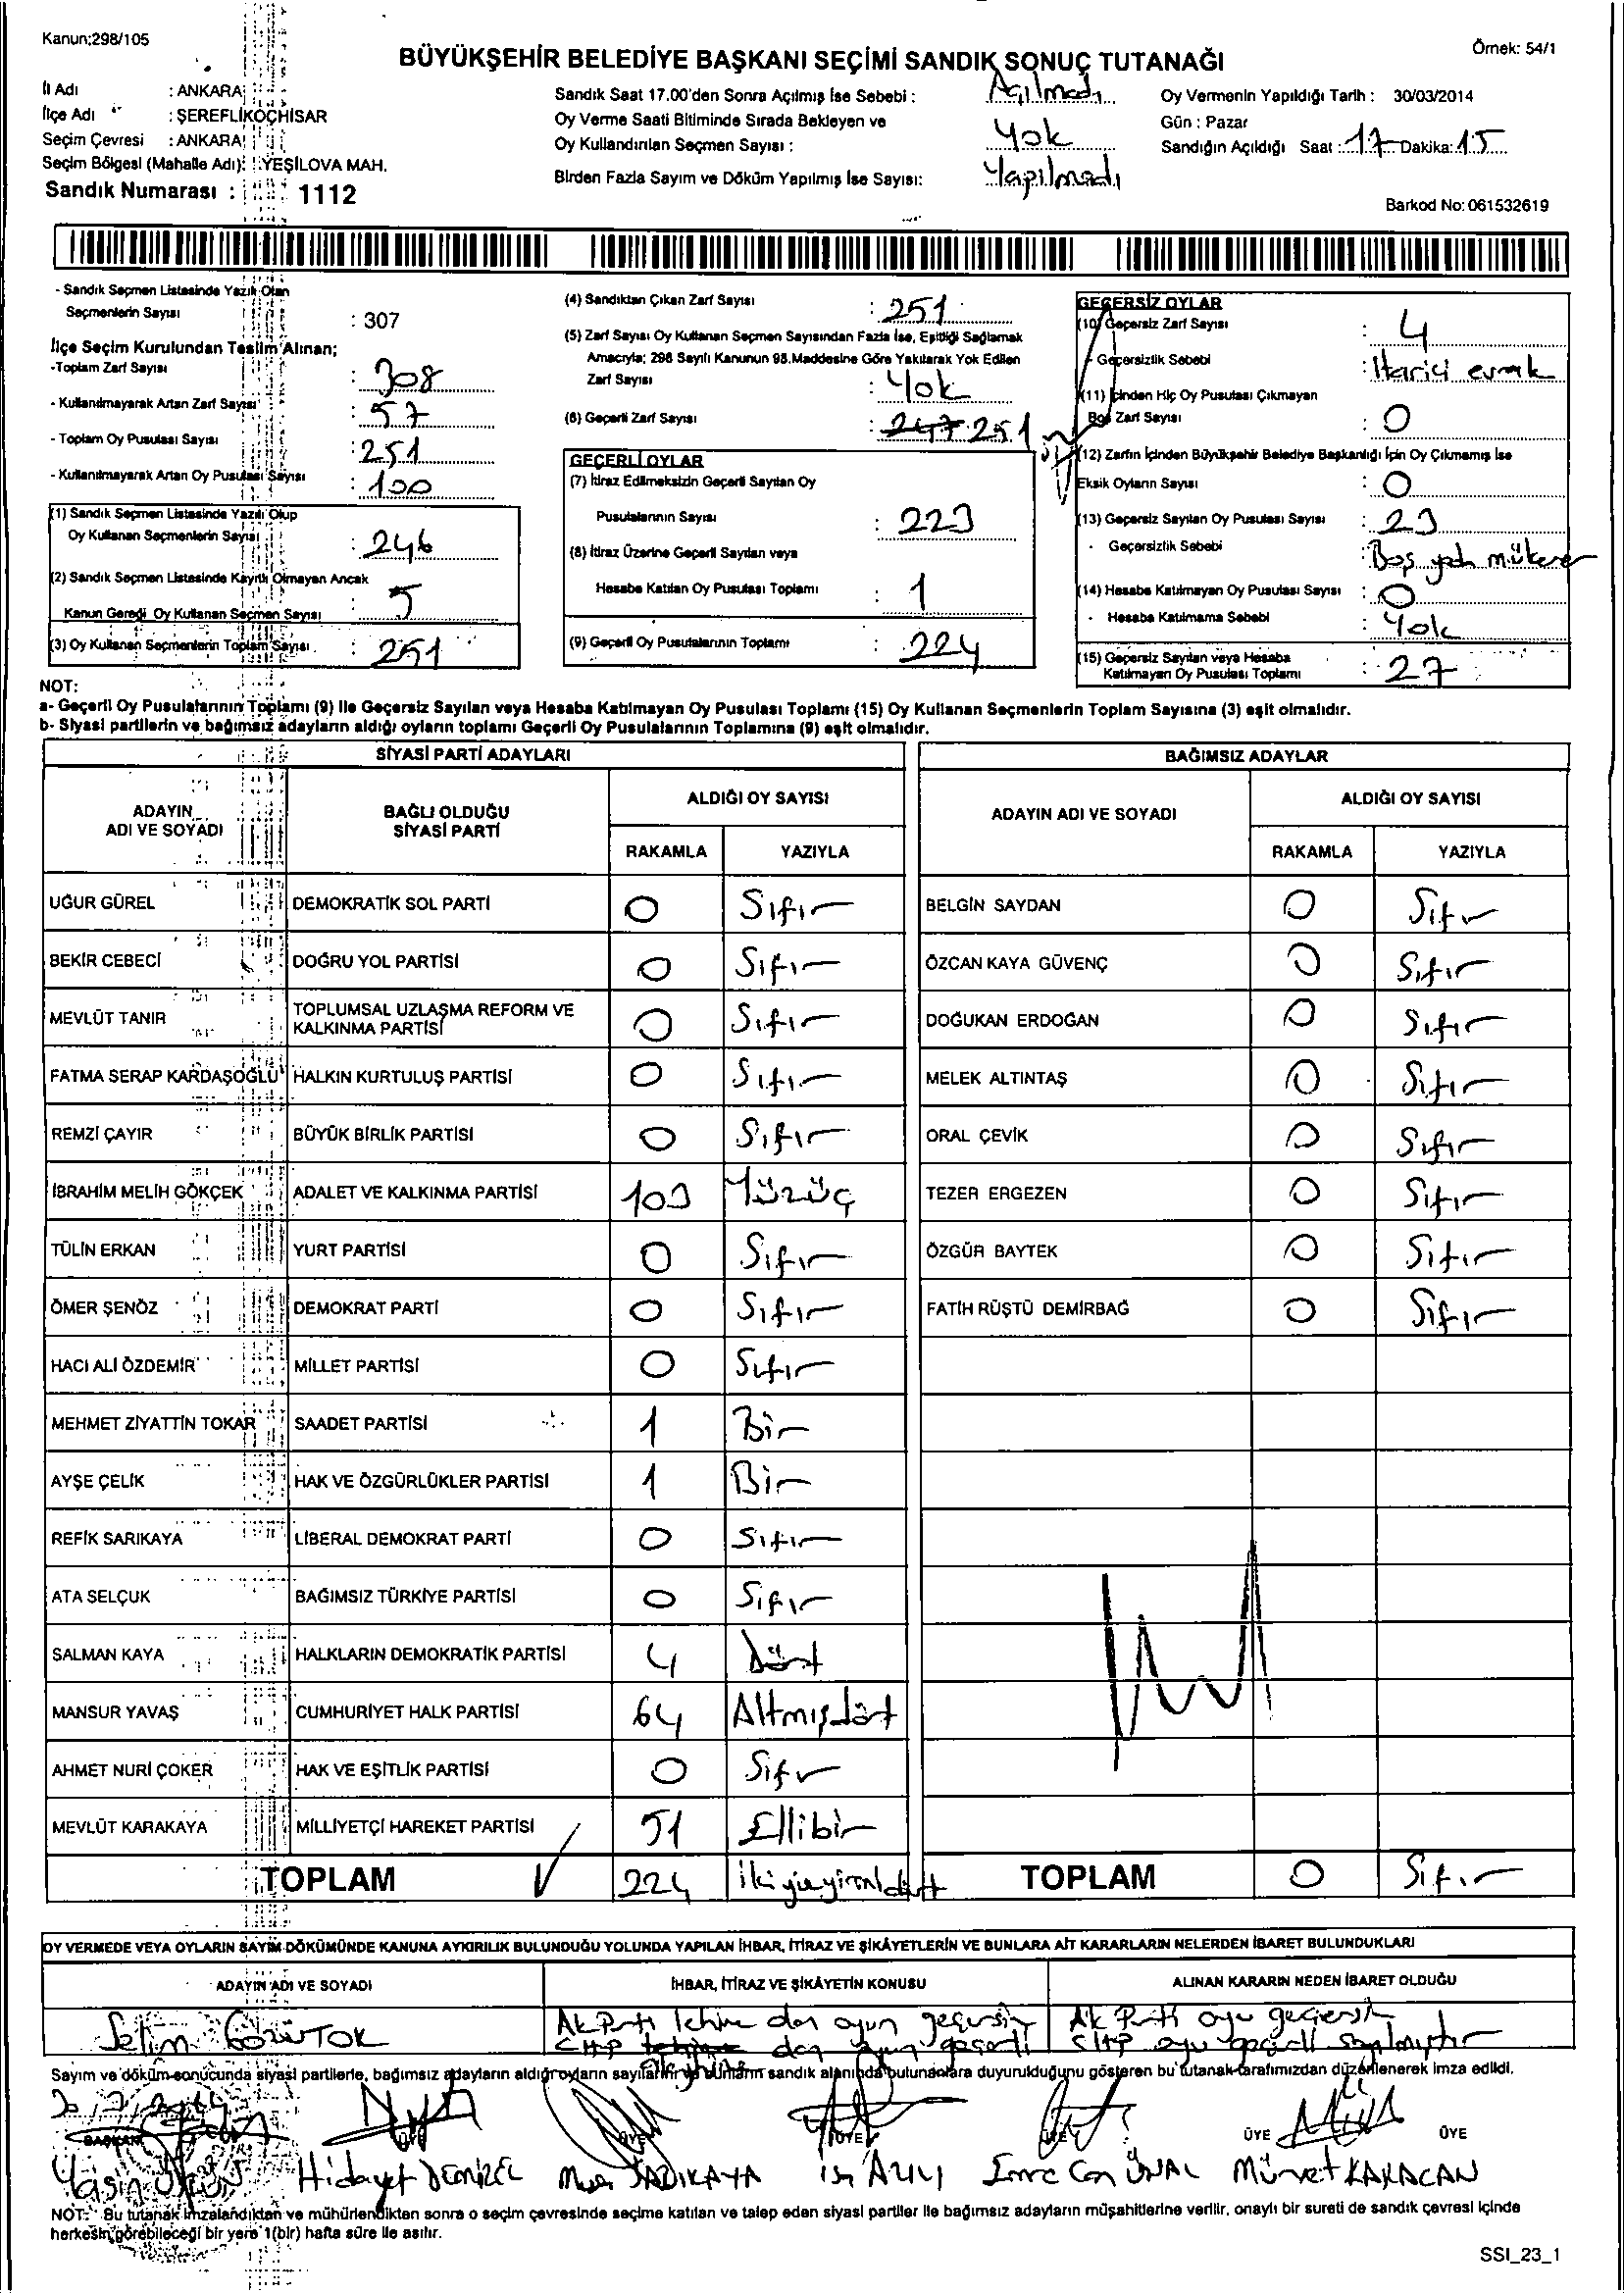 Kanun:298/105
Örnek: 54/1
BÜYÜKŞEHİR BELEDİYE BAŞKANI SEÇİMİ SANDIK SONUÇ TUTANAĞI
İl Adı : ANKARA
İlçe Adı : ŞEREFLİKOÇHİSAR
Seçim Çevresi : ANKARA
Seçim Bölgesi (Mahalle Adı): YEŞİLOVA MAH.
Sandık Numarası : 1112
Sandık Saat 17.00'den Sonra Açılmış İse Sebebi : Açılmadı
Oy Verme Saati Bitiminde Sırada Bekleyen ve
Oy Kullandırılan Seçmen Sayısı : Yok
Birden Fazla Sayım ve Döküm Yapılmış İse Sayısı: Yapılmadı
Oy Vermenin Yapıldığı Tarih : 30/03/2014
Gün : Pazar
Sandığın Açıldığı Saat : 17 Dakika: 15
Barkod No: 061532619
- Sandık Seçmen Listesinde Yazılı Olan
Seçmenlerin Sayısı : 307
İlçe Seçim Kurulundan Teslim Alınan;
-Toplam Zarf Sayısı : 308
- Kullanılmayarak Artan Zarf Sayısı : 57
- Toplam Oy Pusulası Sayısı : 251
- Kullanılmayarak Artan Oy Pusulası Sayısı : 100
(1) Sandık Seçmen Listesinde Yazılı Olup
Oy Kullanan Seçmenlerin Sayısı : 246
(2) Sandık Seçmen Listesinde Kayıtlı Olmayan Ancak
Kanun Gereği Oy Kullanan Seçmen Sayısı : 5
(3) Oy Kullanan Seçmenlerin Toplam Sayısı : 251
(4) Sandıktan Çıkan Zarf Sayısı : 251
(5) Zarf Sayısı Oy Kullanan Seçmen Sayısından Fazla İse, Eşitliği Sağlamak
Amacıyla; 298 Sayılı Kanunun 98.Maddesine Göre Yakılarak Yok Edilen
Zarf Sayısı : Yok
(6) Geçerli Zarf Sayısı : 247 251
GEÇERLİ OYLAR
(7) İtiraz Edilmeksizin Geçerli Sayılan Oy
Pusulalarının Sayısı : 223
(8) İtiraz Üzerine Geçerli Sayılan veya
Hesaba Katılan Oy Pusulası Toplamı : 1
(9) Geçerli Oy Pusulalarının Toplamı : 224
GEÇERSİZ OYLAR
(10) Geçersiz Zarf Sayısı : 4
- Geçersizlik Sebebi : Harici evrak
(11) İçinden Hiç Oy Pusulası Çıkmayan
Boş Zarf Sayısı : 0
(12) Zarfın İçinden Büyükşehir Belediye Başkanlığı İçin Oy Çıkmamış İse
Eksik Oyların Sayısı : 0
(13) Geçersiz Sayılan Oy Pusulası Sayısı : 23
- Geçersizlik Sebebi : Boş
(14) Hesaba Katılmayan Oy Pusulası Sayısı : 0
- Hesaba Katılmama Sebebi : Yok
(15) Geçersiz Sayılan veya Hesaba
Katılmayan Oy Pusulası Toplamı : 27
NOT:
a- Geçerli Oy Pusulalarının Toplamı (9) İle Geçersiz Sayılan veya Hesaba Katılmayan Oy Pusulası Toplamı (15) Oy Kullanan Seçmenlerin Toplam Sayısına (3) eşit olmalıdır.
b- Siyasi partilerin ve bağımsız adayların aldığı oyların toplamı Geçerli Oy Pusulalarının Toplamına (9) eşit olmalıdır.
SİYASİ PARTİ ADAYLARI
BAĞIMSIZ ADAYLAR
ADAYIN ADI VE SOYADI
BAĞLI OLDUĞU SİYASİ PARTİ
ALDIĞI OY SAYISI
RAKAMLA YAZIYLA
ADAYIN ADI VE SOYADI
ALDIĞI OY SAYISI
RAKAMLA YAZIYLA
UĞUR GÜREL DEMOKRATİK SOL PARTİ 0 Sıfır BELGİN SAYDAN 0 Sıfır
BEKİR CEBECİ DOĞRU YOL PARTİSİ 0 Sıfır ÖZCAN KAYA GÜVENÇ 0 Sıfır
MEVLÜT TANIR TOPLUMSAL UZLAŞMA REFORM VE KALKINMA PARTİSİ 0 Sıfır DOĞUKAN ERDOĞAN 0 Sıfır
FATMA SERAP KARDAŞOĞLU HALKIN KURTULUŞ PARTİSİ 0 Sıfır MELEK ALTINTAŞ 0 Sıfır
REMZİ ÇAYIR BÜYÜK BİRLİK PARTİSİ 0 Sıfır ORAL ÇEVİK 0 Sıfır
İBRAHİM MELİH GÖKÇEK ADALET VE KALKINMA PARTİSİ 103 Yüzüç TEZER ERGEZEN 0 Sıfır
TÜLİN ERKAN YURT PARTİSİ 0 Sıfır ÖZGÜR BAYTEK 0 Sıfır
ÖMER ŞENÖZ DEMOKRAT PARTİ 0 Sıfır FATİH RÜŞTÜ DEMİRBAĞ 0 Sıfır
HACI ALİ ÖZDEMİR MİLLET PARTİSİ 0 Sıfır
MEHMET ZİYATTİN TOKAR SAADET PARTİSİ 1 Bir
AYŞE ÇELİK HAK VE ÖZGÜRLÜKLER PARTİSİ 1 Bir
REFİK SARIKAYA LİBERAL DEMOKRAT PARTİ 0 Sıfır
ATA SELÇUK BAĞIMSIZ TÜRKİYE PARTİSİ 0 Sıfır
SALMAN KAYA HALKLARIN DEMOKRATİK PARTİSİ 4 Dört
MANSUR YAVAŞ CUMHURİYET HALK PARTİSİ 64 Altmışdört
AHMET NURİ ÇOKER HAK VE EŞİTLİK PARTİSİ 0 Sıfır
MEVLÜT KARAKAYA MİLLİYETÇİ HAREKET PARTİSİ 51 Ellibir
TOPLAM 224 ikiyüzyirmidört TOPLAM 0 Sıfır
OY VERMEDE VEYA OYLARIN SAYIM DÖKÜMÜNDE KANUNA AYKIRILIK BULUNDUĞU YOLUNDA YAPILAN İHBAR, İTİRAZ VE ŞİKÂYETLERİN VE BUNLARA AİT KARARLARIN NELERDEN İBARET BULUNDUKLARI
ADAYIN ADI VE SOYADI İHBAR, İTİRAZ VE ŞİKÂYETİN KONUSU ALINAN KARARIN NEDEN İBARET OLDUĞU
Selim
Ak Parti lehine olan oyun geçersiz
CHP olan oyun geçerli
Ak Parti oyu geçersiz
CHP oyu geçerli sayılmıştır
Sayım ve döküm sonucunda siyasi partilerle, bağımsız adayların aldığı oyların sayılarını ve bunların sandık alanında bulunanlara duyurulduğunu gösteren bu tutanak tarafımızdan düzenlenerek imza edildi.
BAŞKAN ÜYE ÜYE ÜYE ÜYE ÜYE ÜYE
Yasin Hidayet SADIKAYA Emre Can ÜNAL Mürvet KARACAN
NOT: Bu tutanak imzalandıktan ve mühürlendikten sonra o seçim çevresinde seçime katılan ve talep eden siyasi partiler ile bağımsız adayların müşahitlerine verilir, onaylı bir sureti de sandık çevresi içinde
herkesin görebileceği bir yere 1(bir) hafta süre ile asılır.
SSI_23_1